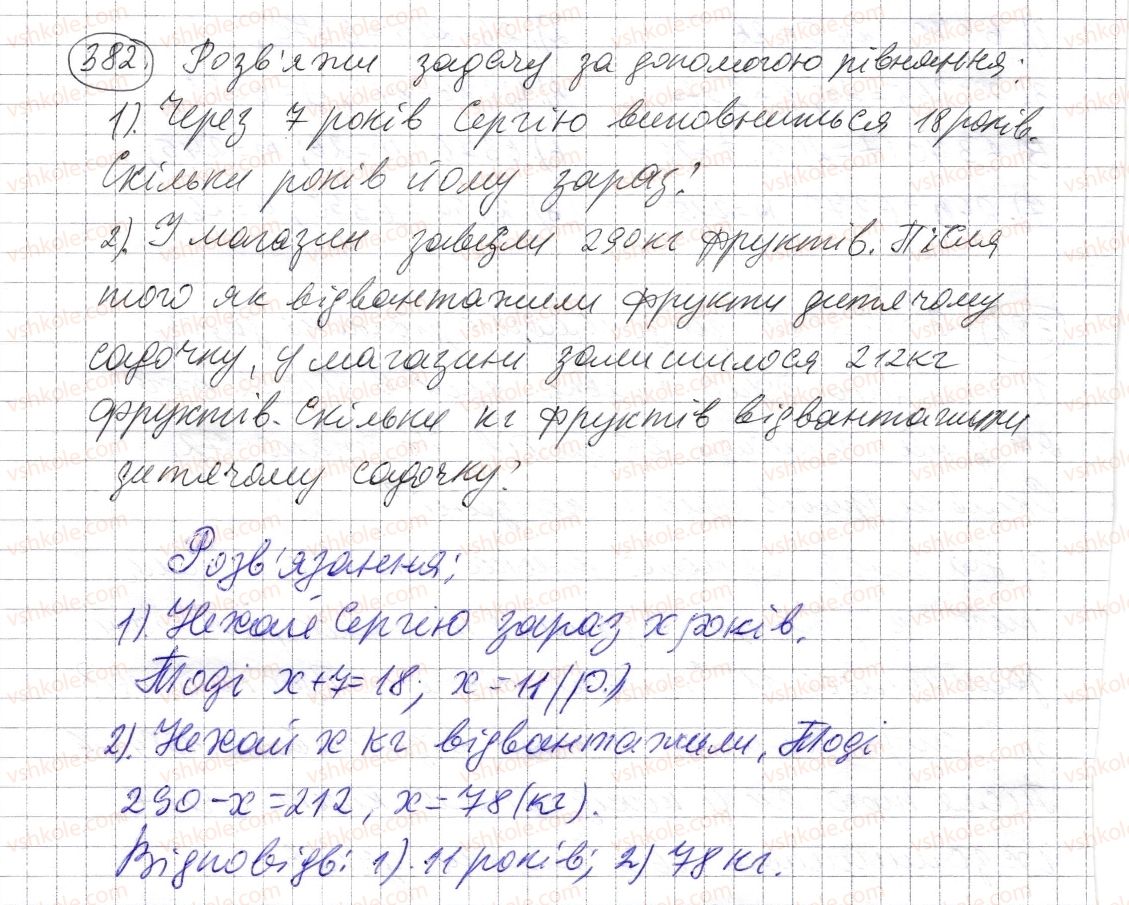 382. Розв'яжи задачу за допомогою рівняння:
1). Через 7 років Сергію виповниться 18 років.
Скільки років йому зараз?
2). У магазин завезли 290 кг фруктів. Після
того як відвантажили фрукти дитячому
садочку, у магазині залишилося 212 кг
фруктів. Скільки кг фруктів відвантажили
дитячому садочку?
Розв'язання:
1). Нехай Сергію зараз x років.
Тоді x+7=18; x=11(р.)
2). Нехай x кг відвантажили, Тоді
290-x=212, x=78(кг).
Відповідь: 1). 11 років; 2) 78 кг.